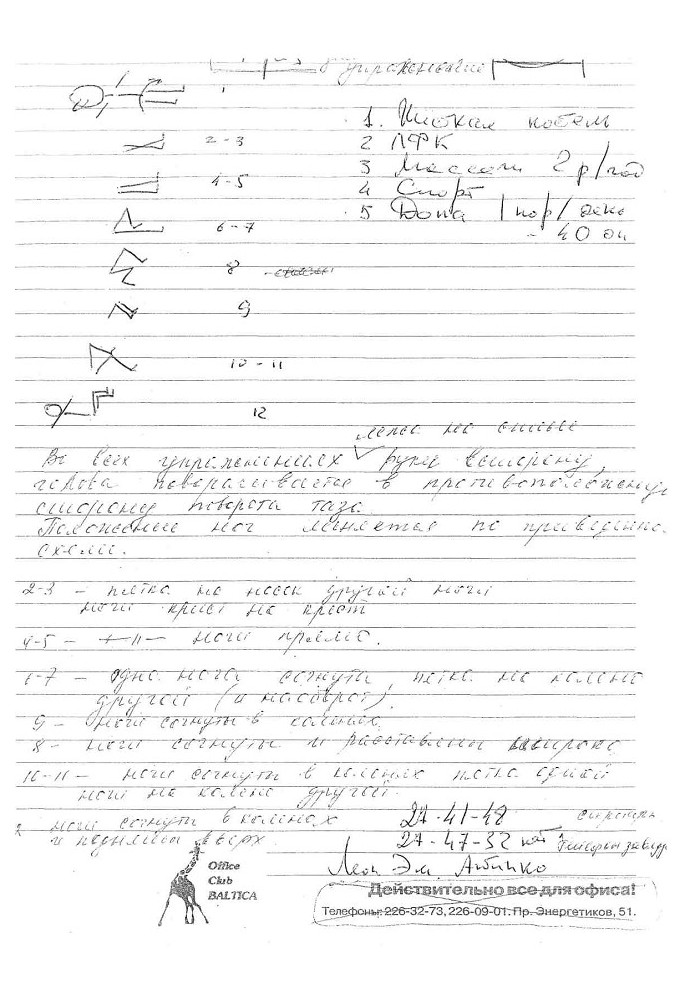 упражнение
1
1.
2-3
2 ЛФК
3 Массаж 2 р/год
4-5
4 Спорт
5
6-7
- 40
8
9
10-11
12
лежа на спине
Во всех упражнениях руки в сторону,
голова поворачивается в противоположную
сторону поворота таза.
Положение ног меняется по
схеме.
2-3 - пятка на носок другой ноги
ноги крест на крест
4-5 - -"- ноги прямо.
6-7 - одна нога согнута, пятка на колено
другой (и наоборот).
9 - ноги согнуты в коленях
8 - ноги согнуты и расставлены широко
10-11 - ноги согнуты в коленях пятка одной
ноги на колено другой.
ноги согнуты в коленях
и подняты вверх
27-41-48
27-47-32
Office
Club
BALTICA
Действительно все для офиса!
Телефоны: 226-32-73, 226-09-01. Пр. Энергетиков, 51.